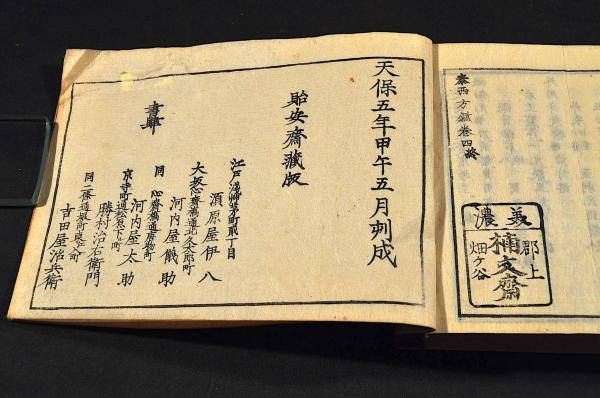 泰西方鑑卷四終
美濃
郡上
文齋
畑ケ谷
天保五年甲午五月刻成
貽安齋藏版
書肆
江戸浅草茅町貳丁目
須原屋伊八
大坂心齋橋通北久太郎町
河内屋儀助
同 心齋橋通唐物町
河内屋太助
京寺町通松原下町
勝村治右衛門
同二條通堺町
吉田屋治兵衛